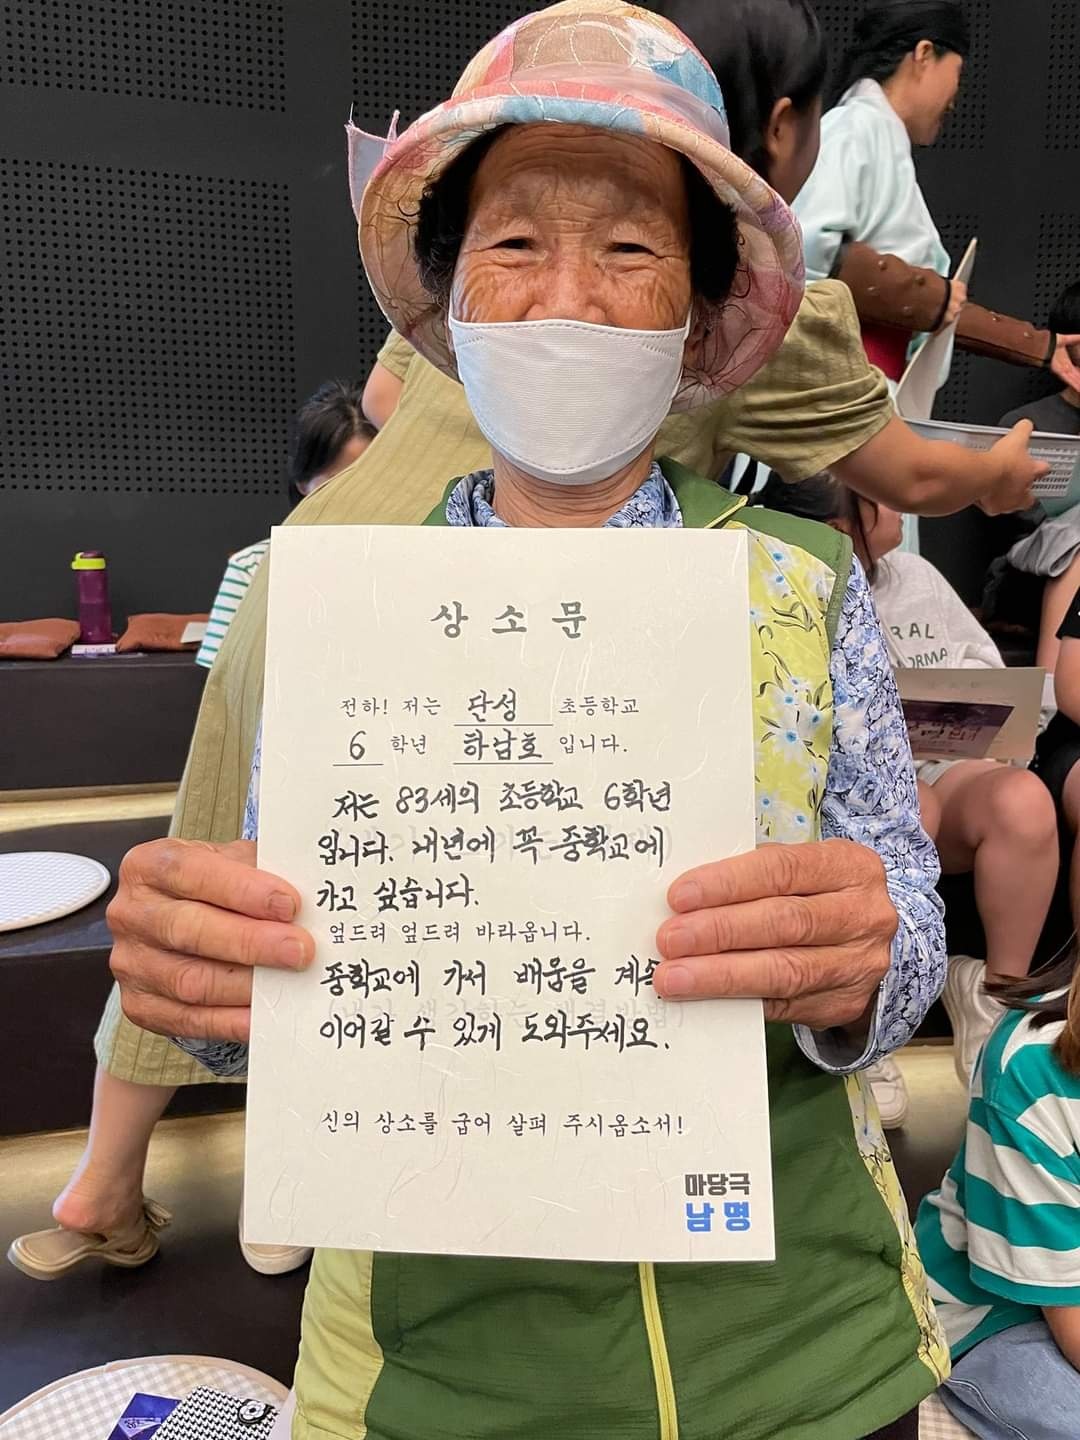 상 소 문
전하! 저는 단성 초등학교
6 학년 하남호 입니다.
저는 83세의 초등학교 6학년
입니다. 내년에 꼭 중학교에
가고 싶습니다.
엎드려 엎드려 바라옵니다.
중학교에 가서 배움을 계속
이어갈 수 있게 도와주세요.
신의 상소를 굽어 살펴 주시옵소서!
마당극
남명
RAL